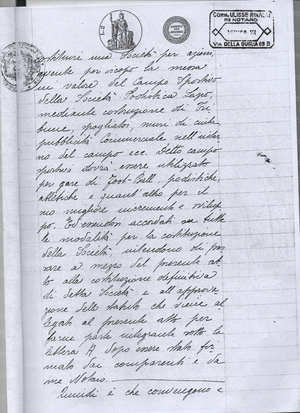 COMM. ULISSE
DI NOTARO
VIA DELLA GUGLIA 69 B
L. 2
costituire una Società per azioni
avente per iscopo la messa
in valore del Campo Sportivo
della Società Podistica Lazio,
mediante costruzione di Tri
bune, spogliatoi, muri di cinta,
pubblicità commerciale nell'inter
no del campo ecc. Detto campo
sportivo dovrà essere utilizzato
per gare di Foot-Ball, podistiche,
atletiche e quant'altro per il
suo migliore incremento e svilup
po. Ed essendosi accordati su tutte
le modalità per la costituzione
della Società, intendono di pas
sare a mezzo del presente at
to alla costituzione definitiva
di detta Società e all'approva
zione dello statuto che viene al
legato al presente atto per
farne parte integrante sotto la
lettera A dopo essere stato fir
mato dai comparenti e da
me Notaro.
Quindi è che convengono e